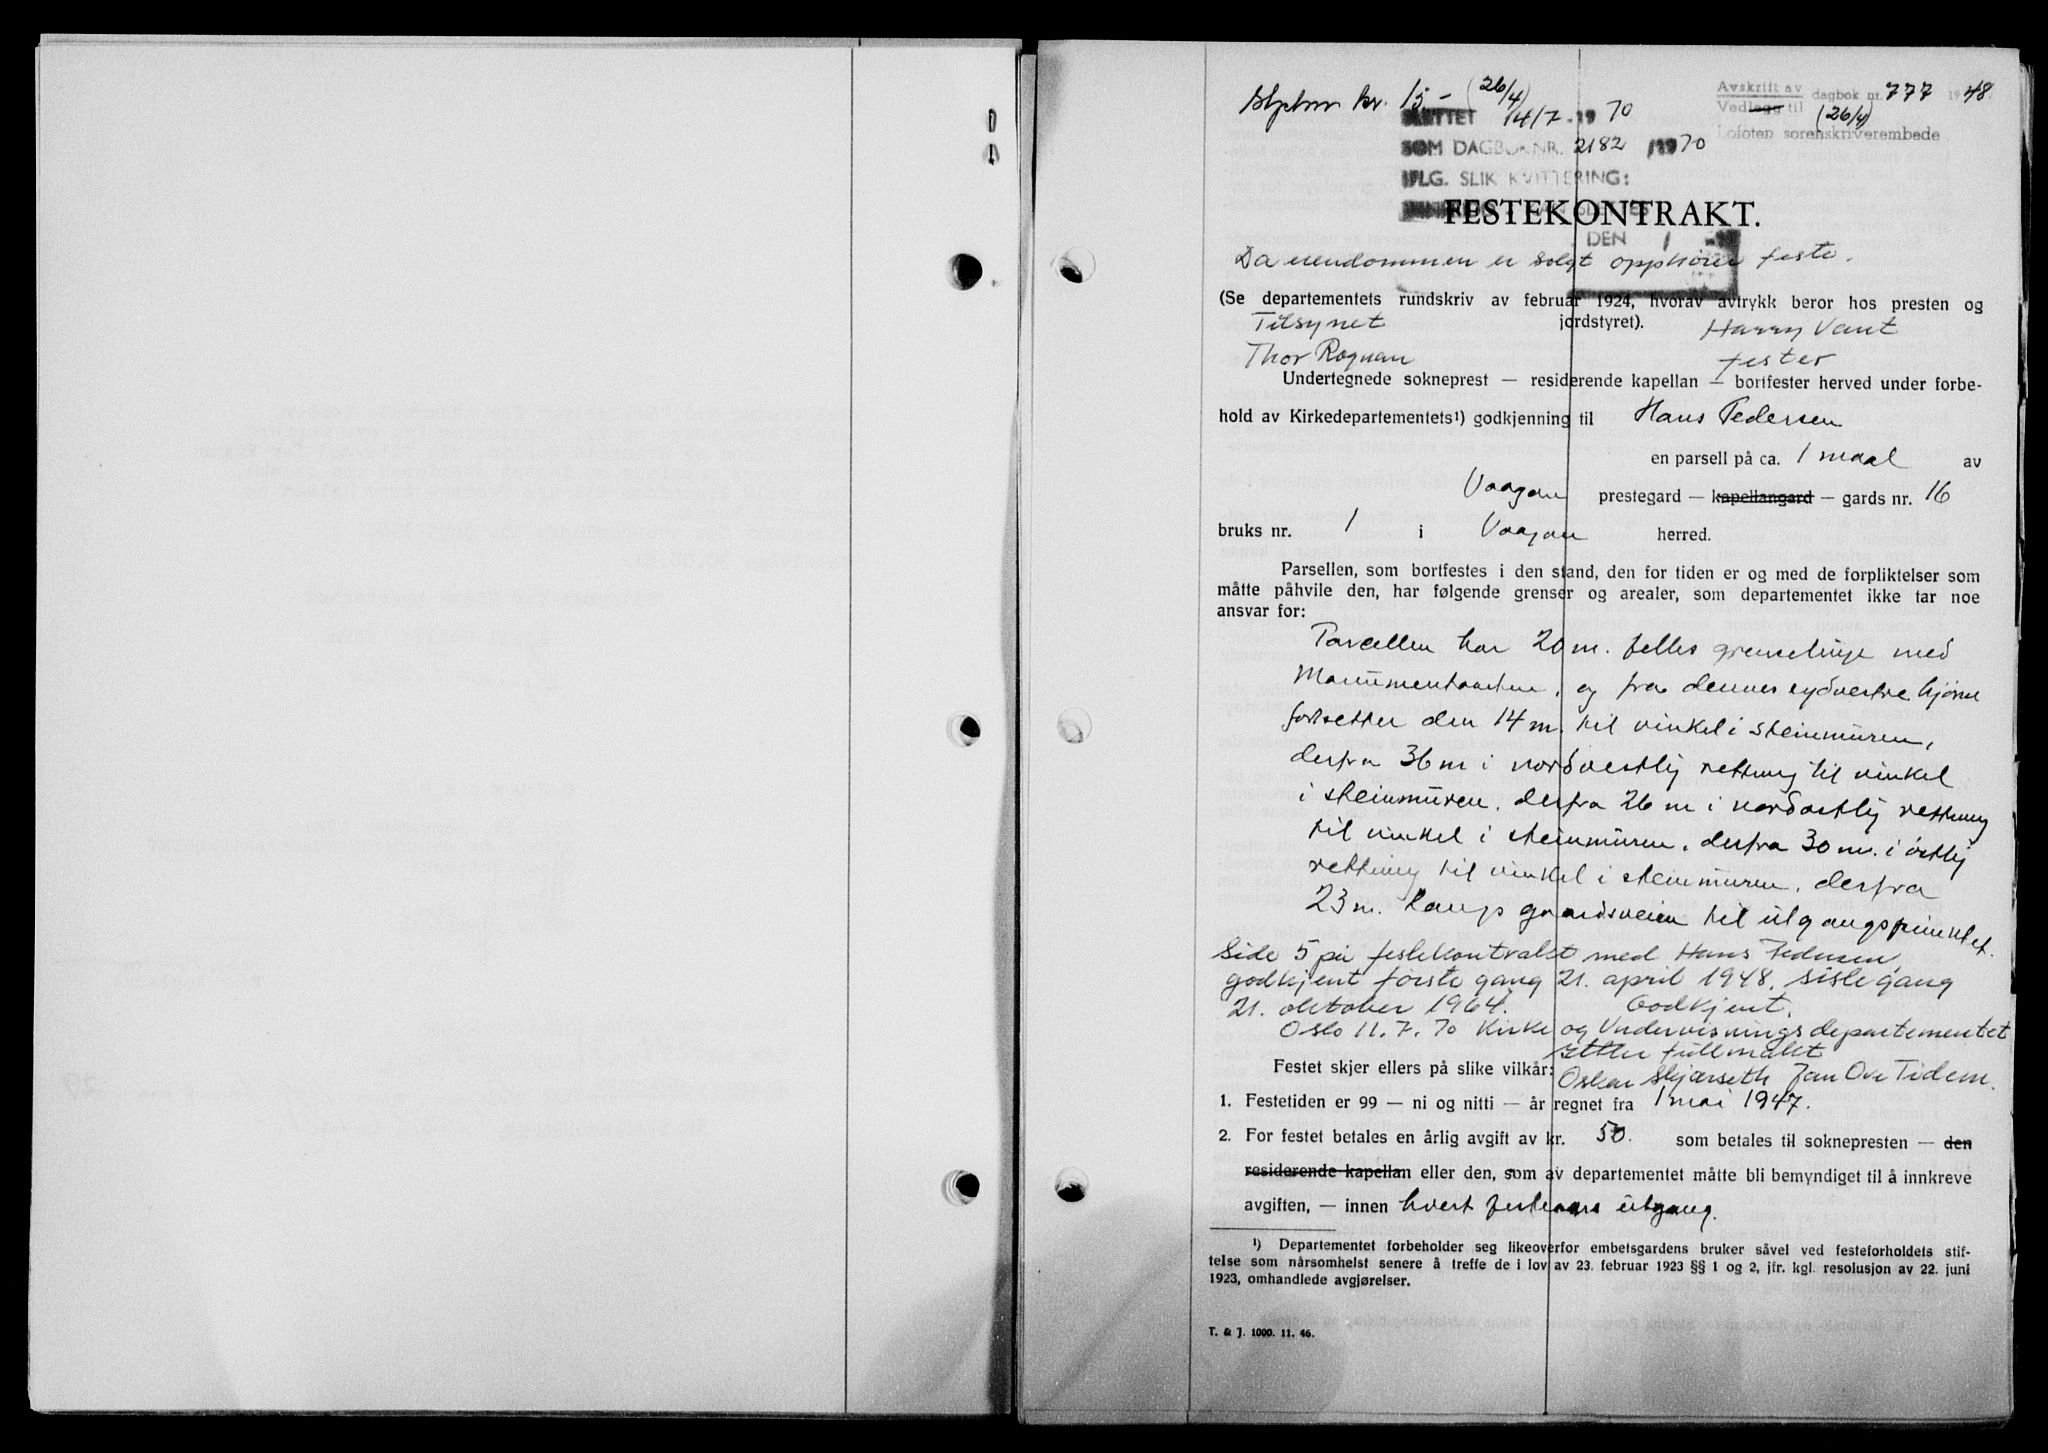 Avskrift av dagbok nr. 777 1948
Vedlegg til (26/4)
Lofoten sorenskriverembede
kr. 15.- (26/4)
SLETTET 14/7-1970
SOM DAGBOKNR. 2182 /1970
IFLG. SLIK KVITTERING:
FESTEKONTRAKT.
DEN 1
Da eiendommen er solgt opphører feste.
(Se departementets rundskriv av februar 1924, hvorav avtrykk beror hos presten og
jordstyret).
Tilsynet Harry Vant
Thor Rognan fester
Undertegnede sokneprest — residerende kapellan — bortfester herved under forbe-
hold av Kirkedepartementets¹) godkjenning til Hans Pedersen
en parsell på ca. 1 maal av
Vaagan prestegard — kapellangard — gards nr. 16
bruks nr. 1 i Vaagan herred.
Parsellen, som bortfestes i den stand, den for tiden er og med de forpliktelser som
måtte påhvile den, har følgende grenser og arealer, som departementet ikke tar noe
ansvar for:
Parcellen har 20 m. felles grenselinje med
Monumenttomten, og fra dennes sydvestre hjørne
fortsetter den 14 m. til vinkel i steinmuren,
derfra 36 m i nordvestlig retning til vinkel
i steinmuren, derfra 26 m i nordostlig retning
til vinkel i steinmuren, derfra 30 m. i østlig
retning til vinkel i steinmuren, derfra
23 m. langs gaardsveien til utgangspunktet.
Side 5 på festekontrakt med Hans Pedersen,
godkjent første gang 21. april 1948, siste gang
21. oktober 1964. Godkjent.
Oslo 11.7.70 Kirke og Undervisningsdepartementet
etter fullmakt
Festet skjer ellers på slike vilkår: Oskar Skjærseth Jan Ove Tidem.
1. Festetiden er 99 — ni og nitti — år regnet fra 1 mai 1947.
2. For festet betales en årlig avgift av kr. 50. som betales til soknepresten — den
residerende kapellan eller den, som av departementet måtte bli bemyndiget til å innkreve
avgiften, — innen hvert festeaars utgang.
¹) Departementet forbeholder seg likeoverfor embetsgardens bruker såvel ved festeforholdets stif-
telse som nårsomhelst senere å treffe de i lov av 23. februar 1923 §§ 1 og 2, jfr. kgl. resolusjon av 22. juni
1923, omhandlede avgjørelser.
T. & J. 1000. 11. 46.